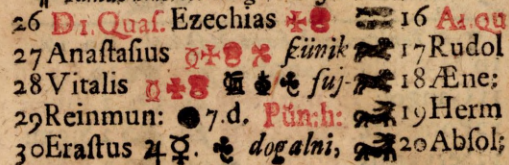 26 D1. Quaſ. Ezechias 16 A1. qu
27 Anaſtaſius ſzünik 17 Rudol
28 Vitalis ſuj- 18 Æne:
29 Reinmun: ● 7. d. Pün:h: 19 Herm
30 Eraſtus ♃ ☿. dogalni, 20 Abſol;